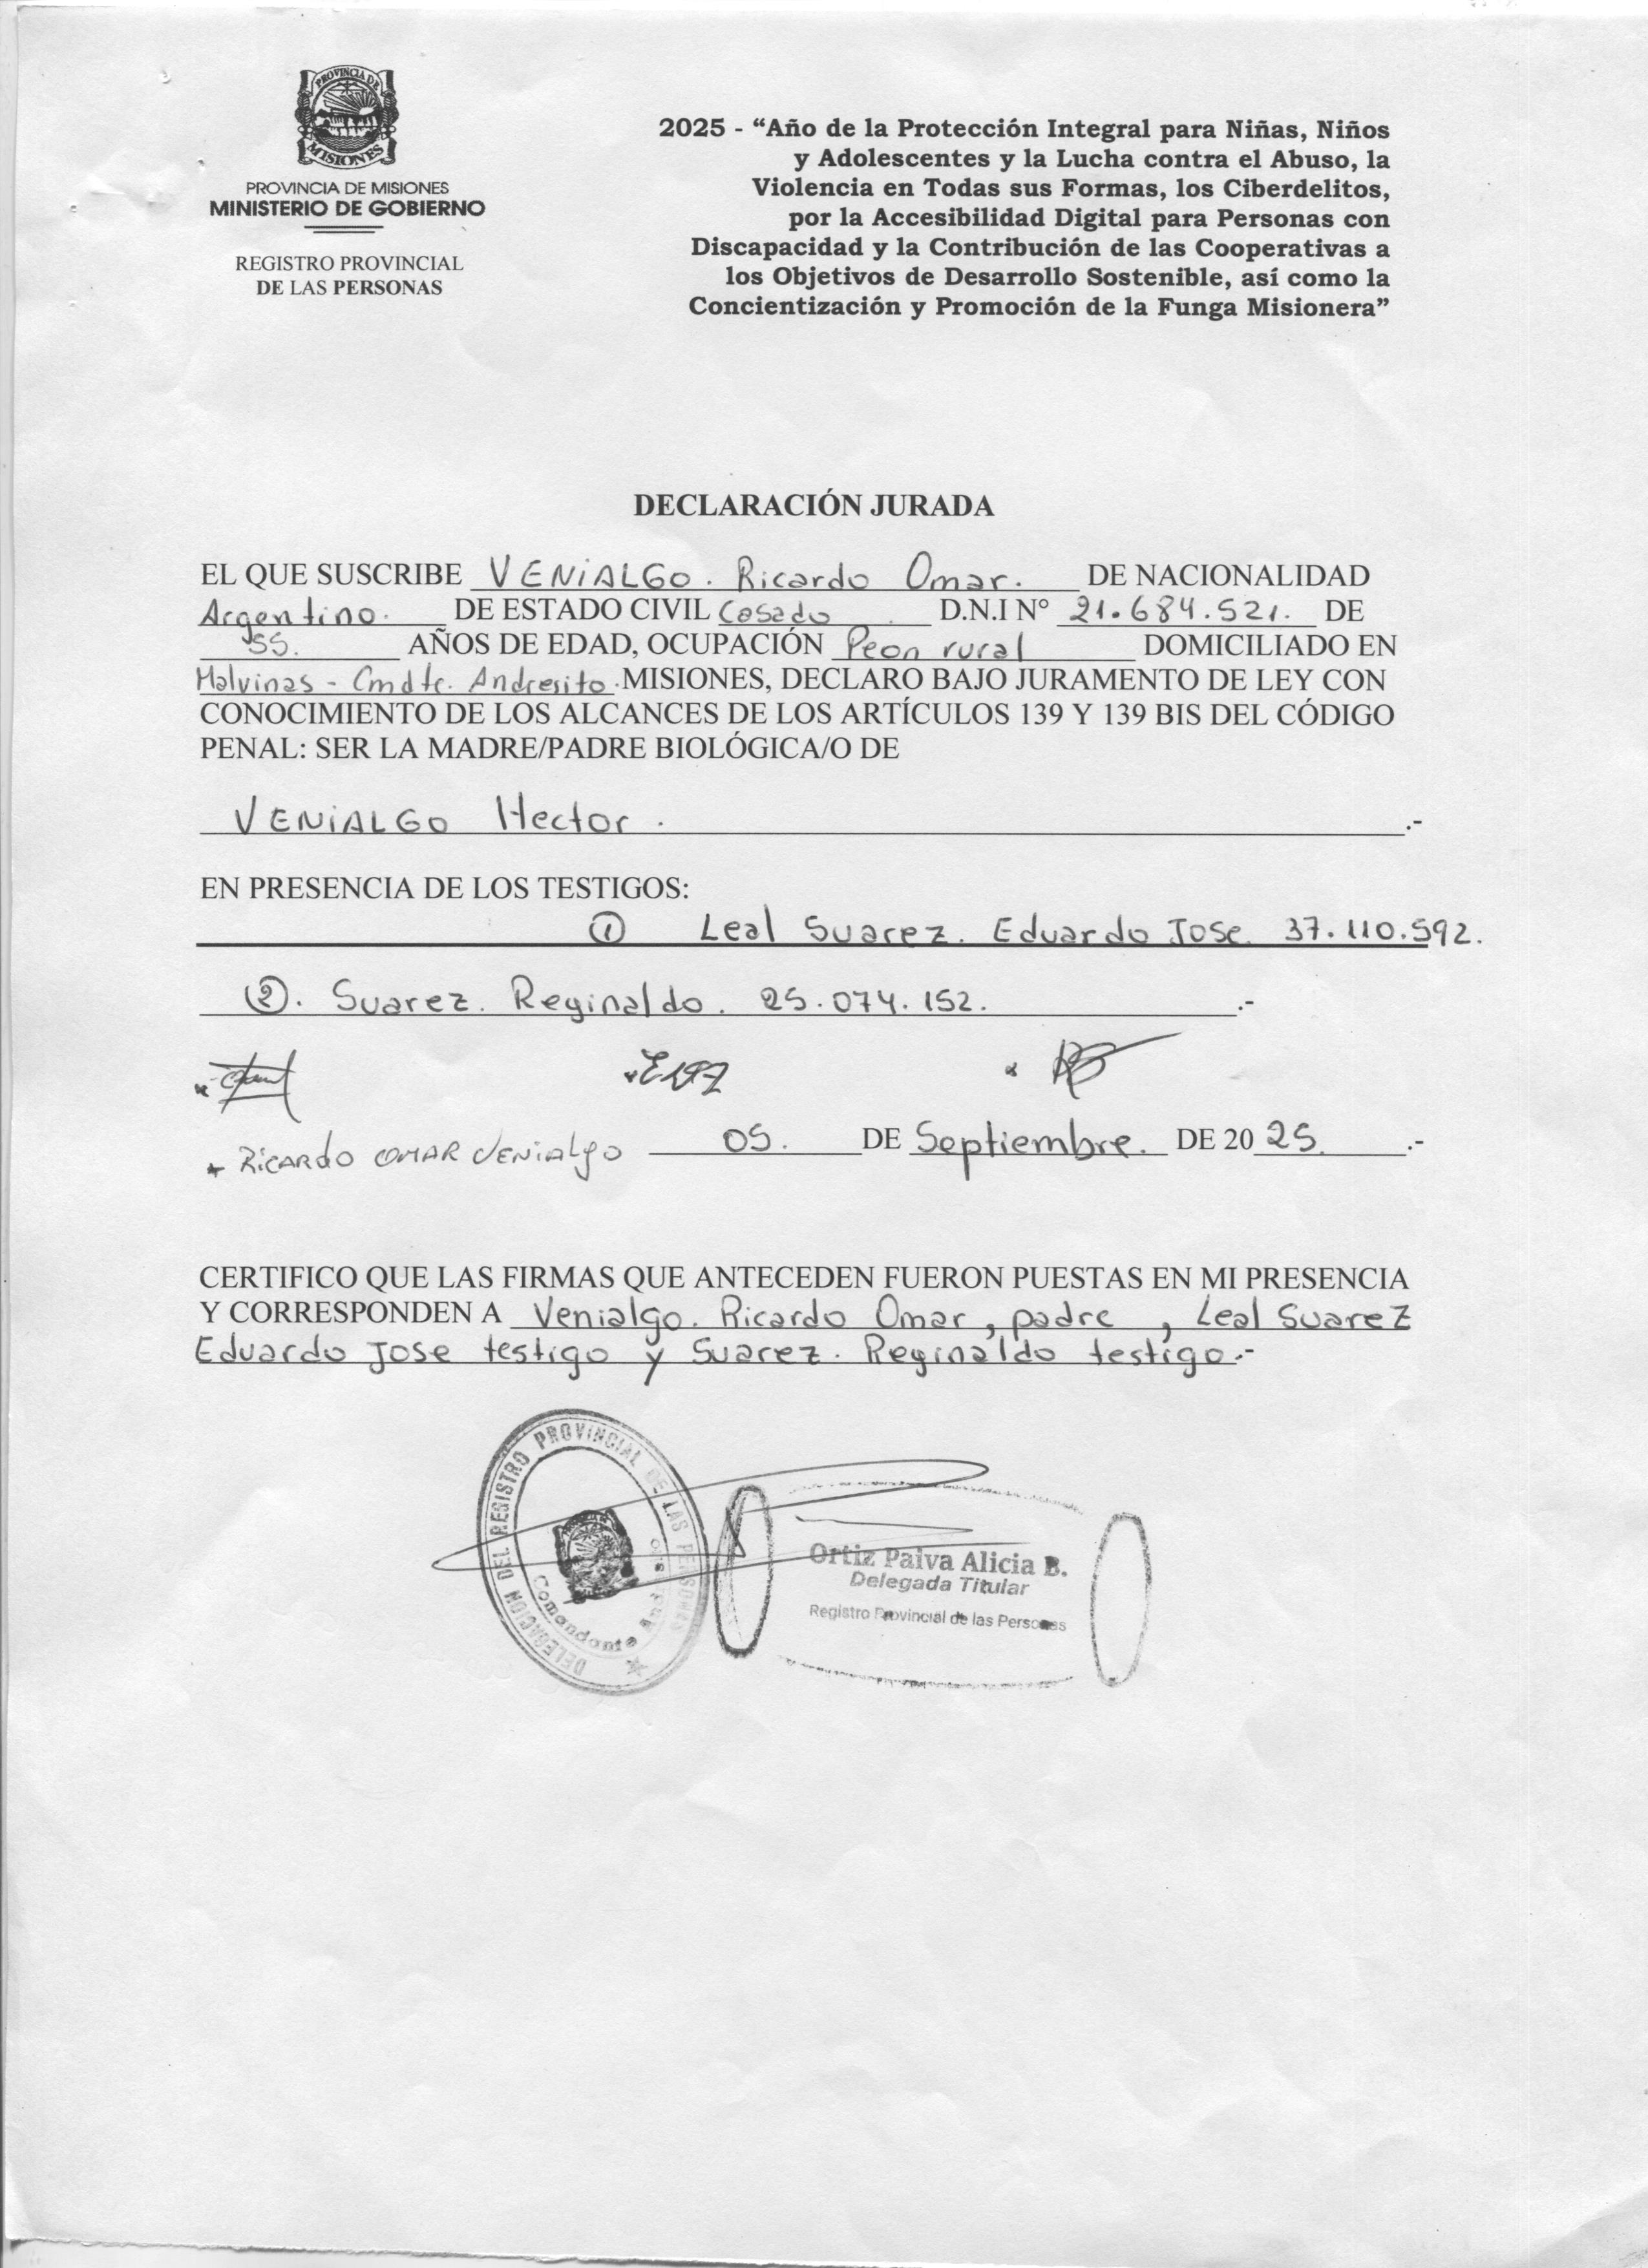 PROVINCIA DE
MISIONES
PROVINCIA DE MISIONES
MINISTERIO DE GOBIERNO
REGISTRO PROVINCIAL
DE LAS PERSONAS
2025 - “Año de la Protección Integral para Niñas, Niños
y Adolescentes y la Lucha contra el Abuso, la
Violencia en Todas sus Formas, los Ciberdelitos,
por la Accesibilidad Digital para Personas con
Discapacidad y la Contribución de las Cooperativas a
los Objetivos de Desarrollo Sostenible, así como la
Concientización y Promoción de la Funga Misionera”
DECLARACIÓN JURADA
EL QUE SUSCRIBE VENIALGO. Ricardo Omar. DE NACIONALIDAD
Argentino. DE ESTADO CIVIL Casado D.N.I N° 21.684.521. DE
55. AÑOS DE EDAD, OCUPACIÓN Peon rural DOMICILIADO EN
Malvinas - Cmdte. Andresito. MISIONES, DECLARO BAJO JURAMENTO DE LEY CON
CONOCIMIENTO DE LOS ALCANCES DE LOS ARTÍCULOS 139 Y 139 BIS DEL CÓDIGO
PENAL: SER LA MADRE/PADRE BIOLÓGICA/O DE
VENIALGO Hector. .-
EN PRESENCIA DE LOS TESTIGOS:
① Leal Suarez. Eduardo Jose. 37.110.592.
②. Suarez. Reginaldo. 25.074.152. .-
RICARDO OMAR VENIALGO 05. DE Septiembre. DE 2025. .-
CERTIFICO QUE LAS FIRMAS QUE ANTECEDEN FUERON PUESTAS EN MI PRESENCIA
Y CORRESPONDEN A Venialgo. Ricardo Omar, padre, Leal Suarez
Eduardo Jose testigo y Suarez. Reginaldo testigo.-
DELEGACION DEL REGISTRO PROVINCIAL DE LAS PERSONAS
Comandante
Ortiz Paiva Alicia B.
Delegada Titular
Registro Provincial de las Personas